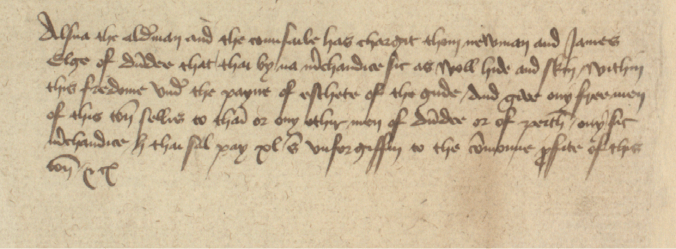 Alsua the aldrman and the counsaile has chargit thom newman and James
Elge of dundee that thai by na mchandice sic as woll hide and skin / within
this fredome undr the payne of eschete of the gude / And gave ony free men
of this ton sellis to thaim or ony othir men of dundee or of perth / ony sic
mchandice thai sal pay xl s unforgiffin to the comoune profite of this
ton